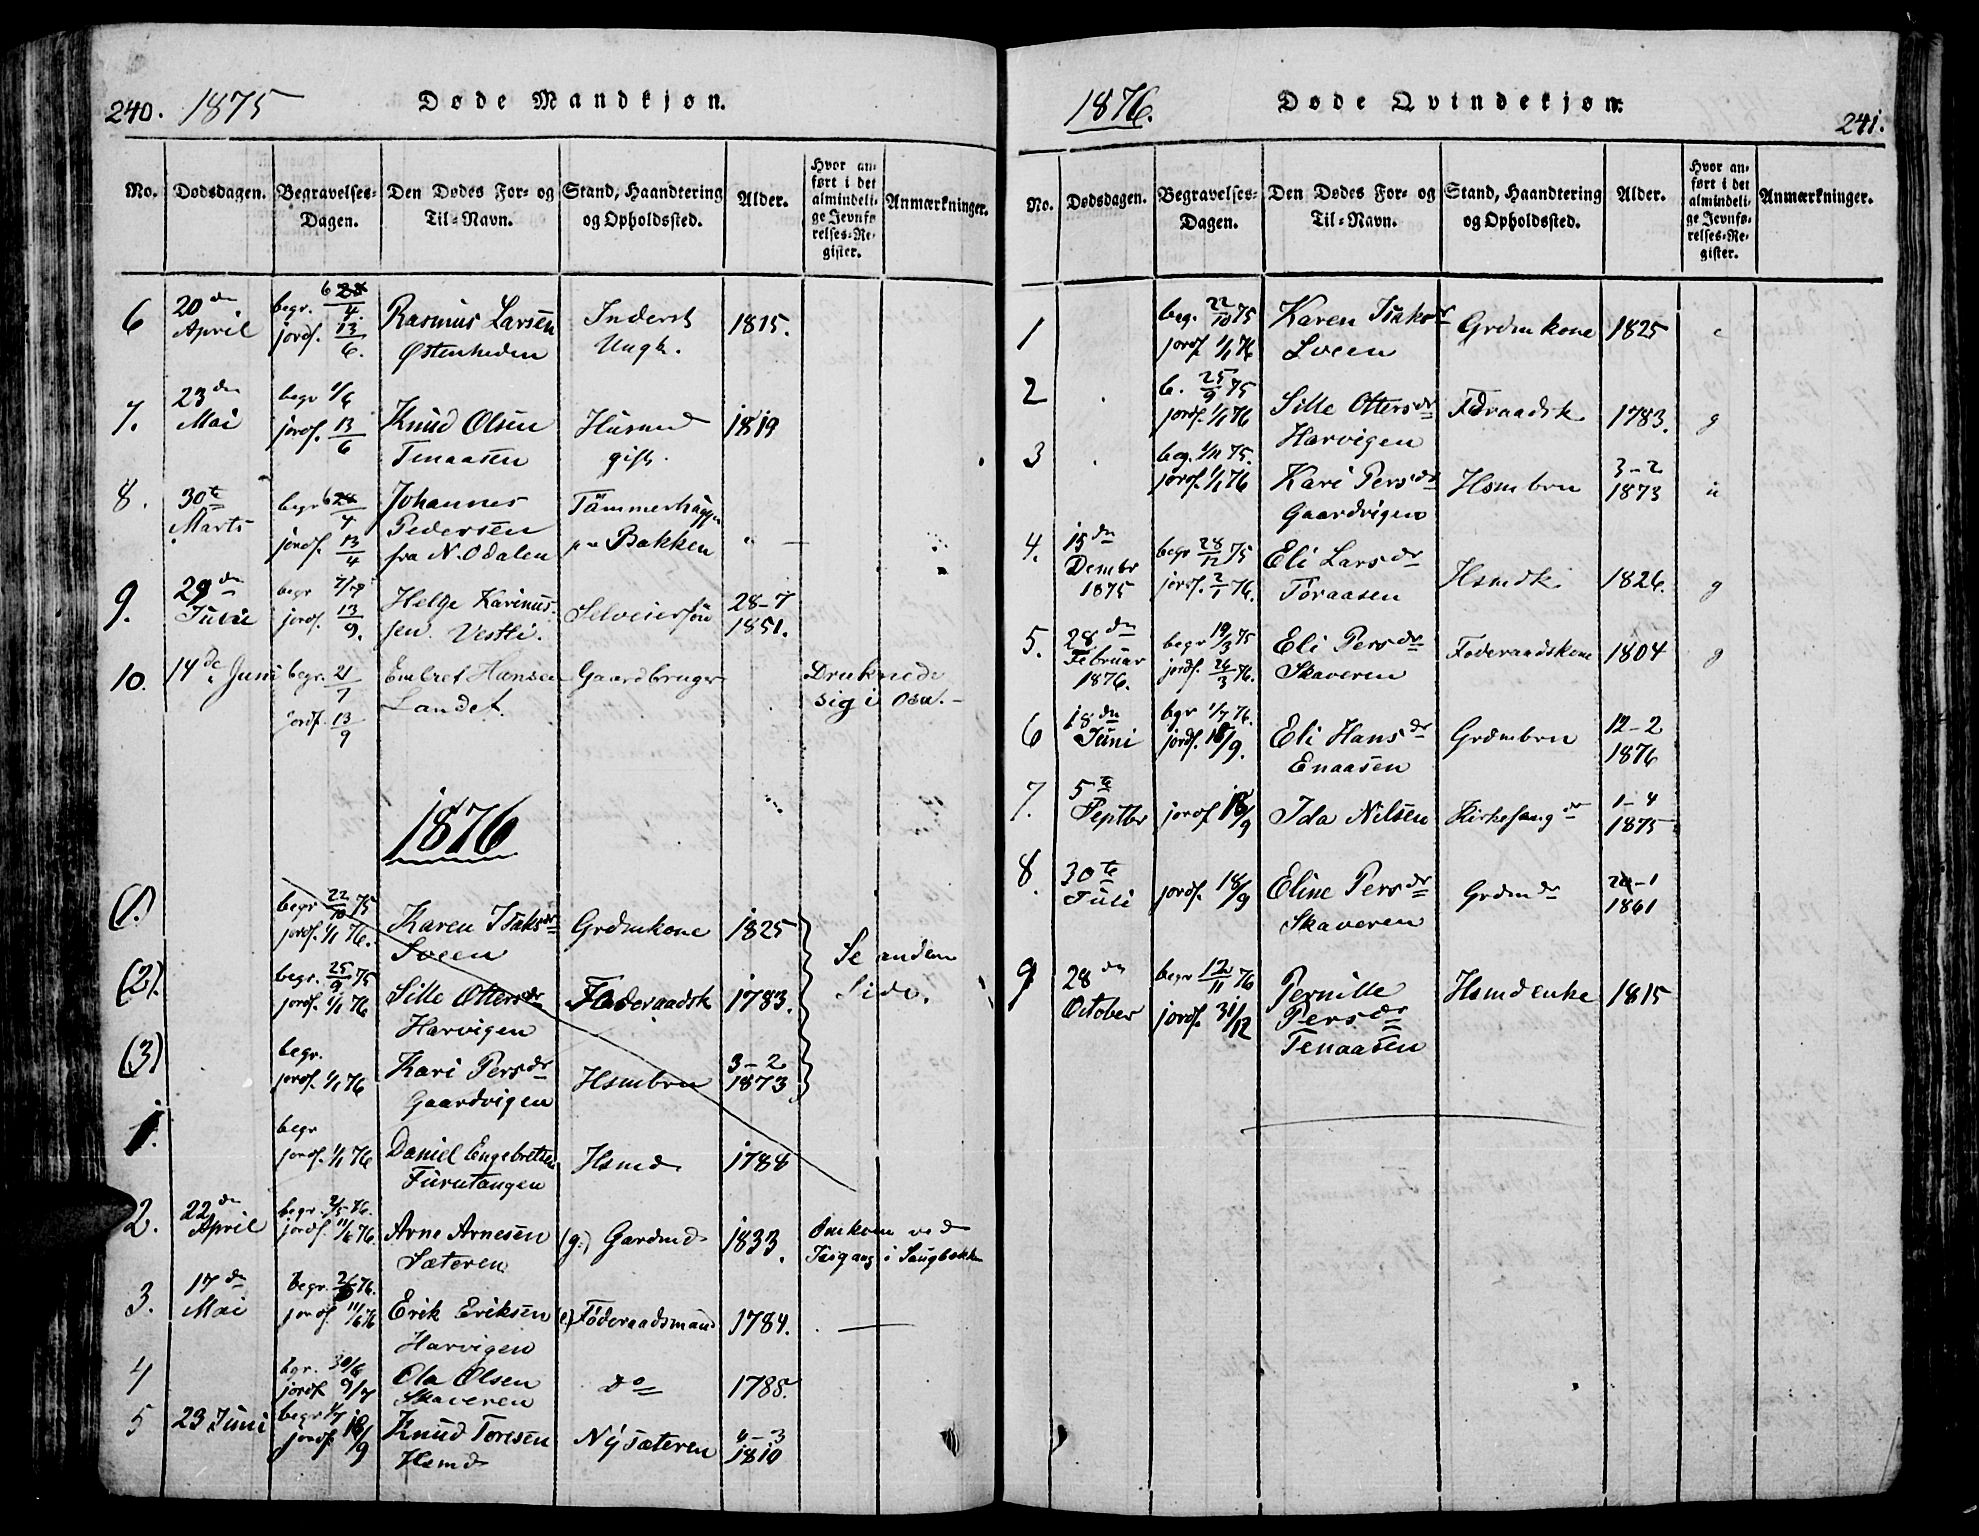 240. 1875 Døde Mandkjøn.
No. Dødsdagen. Begravelses-Dagen. Den Dødes For- og Til-Navn. Stand, Haandtering og Opholdssted. Alder. Hvor anført i det almindelige Jevnførelses-Register. Anmærkninger.
6 20de April begr. 6/4 jordf. 13/6. Rasmus Larsen Østenheden Inderst Ungk. 1815.
7. 23de Mai begr 1/6 jordf. 13/6 Knud Olsen Tenaasen Husmd gift. 1819
8. 30te Marts begr 6/4 jordf. 13/4 Johannes Pedersen fra N. Odalen Tømmerhugger paa Bakken " —
9. 29de Juni begr 7/7 jordf. 13/9. Helge Karinussen. Vestli. Selveiersøn 28-7 1851.
10. 14de Juni begr. 21/7 jordf. 13/9 Embret Hansen Landet. Gaardbruger Druknede sig i Osa. —
1876
(1.) begr 22/10 75 jordf. 1/1 76. Karen Isaksdr Sveen Grdmkone 1825
(2). begr. 25/9 75 jordf. 1/1 76 Sille Ottersdr Harvigen Foderaadsk 1783. Se anden Side.
(3) begr. jordf. 1/1 76 Kari Persdr Gaardvigen Hsmbrn 3-2 1873
1. begr jordf. 1/1 76 Daniel Engebretsen Furutangen Hsmd 1788
2. 22de April begr. 2/5 76. jordf. 11/6 76. Arne Arnesen Sæteren (g.) Gardmd 1833. Omkom ved Isigang i Saugbækken
3. 17de Mai begr. 2/6 76. jordf 11/6 76 Erik Eriksen Harvigen (e) Føderaadsmand 1784. —
4 bgr. 30/6 jordf 9/7 Ola Olsen Skaveren do 1785.
5 23 Juni begr 1/7 jordf. 18/9 Knud Toresen Hsmd Nysæteren 4-3 1810
1876. Døde Qvindekjøn. 241.
No. Dødsdagen. Begravelses-Dagen. Den Dødes For- og Til-Navn. Stand, Haandtering og Opholdssted. Alder. Hvor anført i det almindelige Jevnførelses-Register. Anmærkninger.
1 beg. 22/10 75 jordf 1/1 76 Karen Isaksdr Sveen Grdmkone 1825 e
2 b. 25/9 75 jordf. 1/1 76 Sille Ottersdr Harvigen Fdraadsk 1783. g
3 beg. 1/11 75. jordf. 1/1 76 Kari Persdr Gaardvigen Hsmbrn 3-2 1873 u
4. 15de Dembr 1875 begr 28/12 75 jordf. 2/1 76. Eli Larsdr Toraasen Hsmdk 1826. g
5. 28de Februar 1876. begr 19/3 75 jordf. 26/3 76. Eli Persdr Skaveren Foderaadskone 1804 g
6 18de Juni bgr 1/7 76. jordf. 18/9. Eli Hansdr Enaasen Grdmbrn 12-2 1876
7. 5te Septbr jordf 18/9 Ida Nilsen Kirkesangdr 1-4 1875
8. 30te Juli jordf. 18/9 Eline Persdr Skaveren Grdmdr 20-1 1861
9 28de October begr 12/11 76 jordf. 31/12 Pernille Persdr Tenaasen Hsmdenke 1815